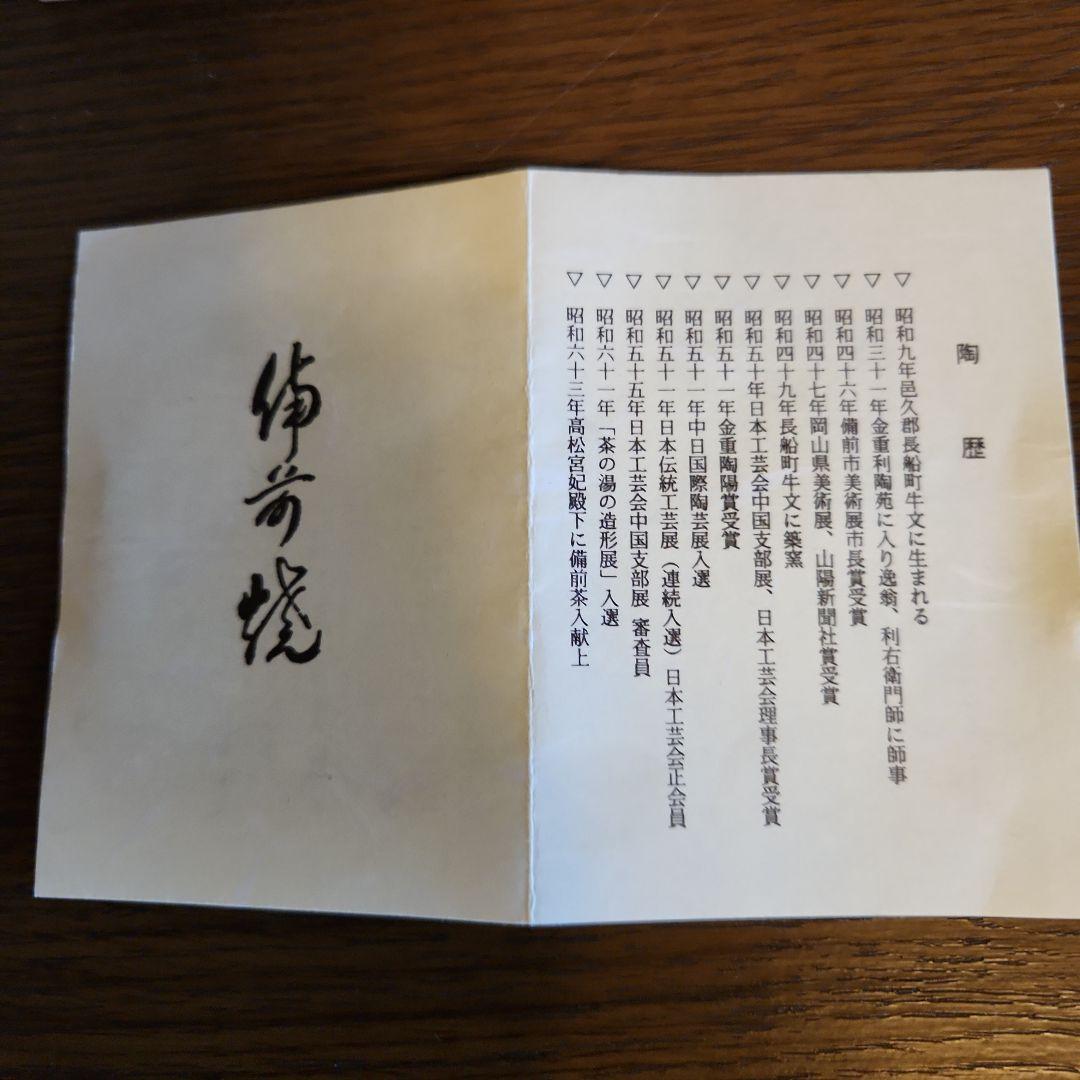 陶歴
▽ 昭和九年邑久郡長船町牛文に生まれる
▽ 昭和三十一年金重利陶苑に入り逸翁、利右衛門師に師事
▽ 昭和四十六年備前市美術展市長賞受賞
▽ 昭和四十七年岡山県美術展、山陽新聞社賞受賞
▽ 昭和四十九年長船町牛文に築窯
▽ 昭和五十年日本工芸会中国支部展、日本工芸会理事長賞受賞
▽ 昭和五十一年金重陶陽賞受賞
▽ 昭和五十一年中日国際陶芸展入選
▽ 昭和五十一年日本伝統工芸展（連続入選）日本工芸会正会員
▽ 昭和五十五年日本工芸会中国支部展 審査員
▽ 昭和六十一年「茶の湯の造形展」入選
▽ 昭和六十三年高松宮妃殿下に備前茶入献上
備前焼